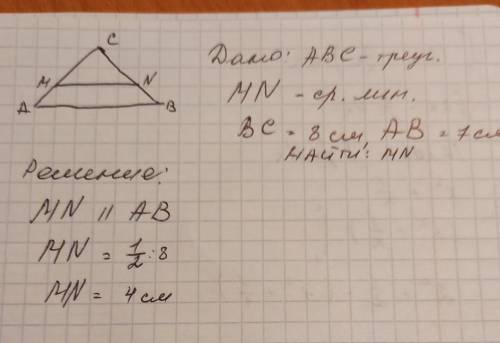 C
M N
A B
Дано: ABC - треуг.
MN - ср. лин.
BC = 8 см, AB = 7см
НАЙТИ: MN
Решение:
MN || AB
MN = 1/2 : 8
MN = 4 см